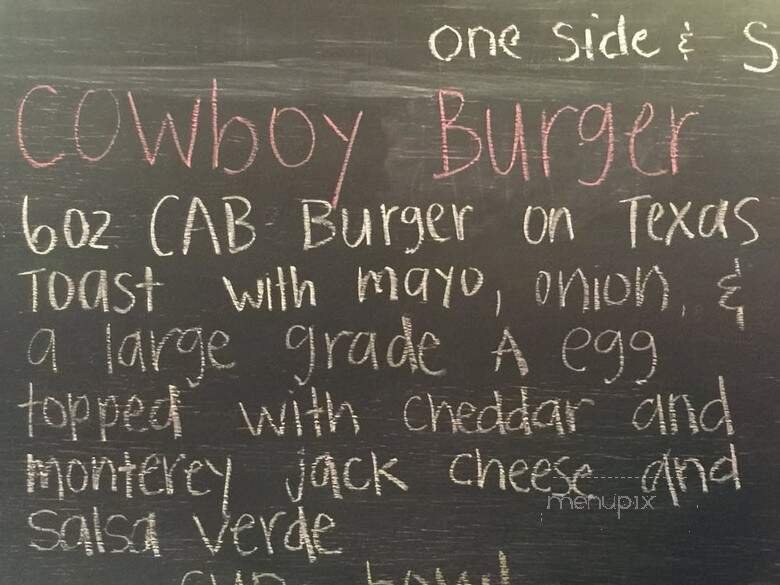 one side & S
Cowboy Burger
6oz CAB Burger on Texas
Toast with mayo, onion, &
a large grade A egg
topped with cheddar and
monterey jack cheese and
menupix
salsa verde
cup bowl